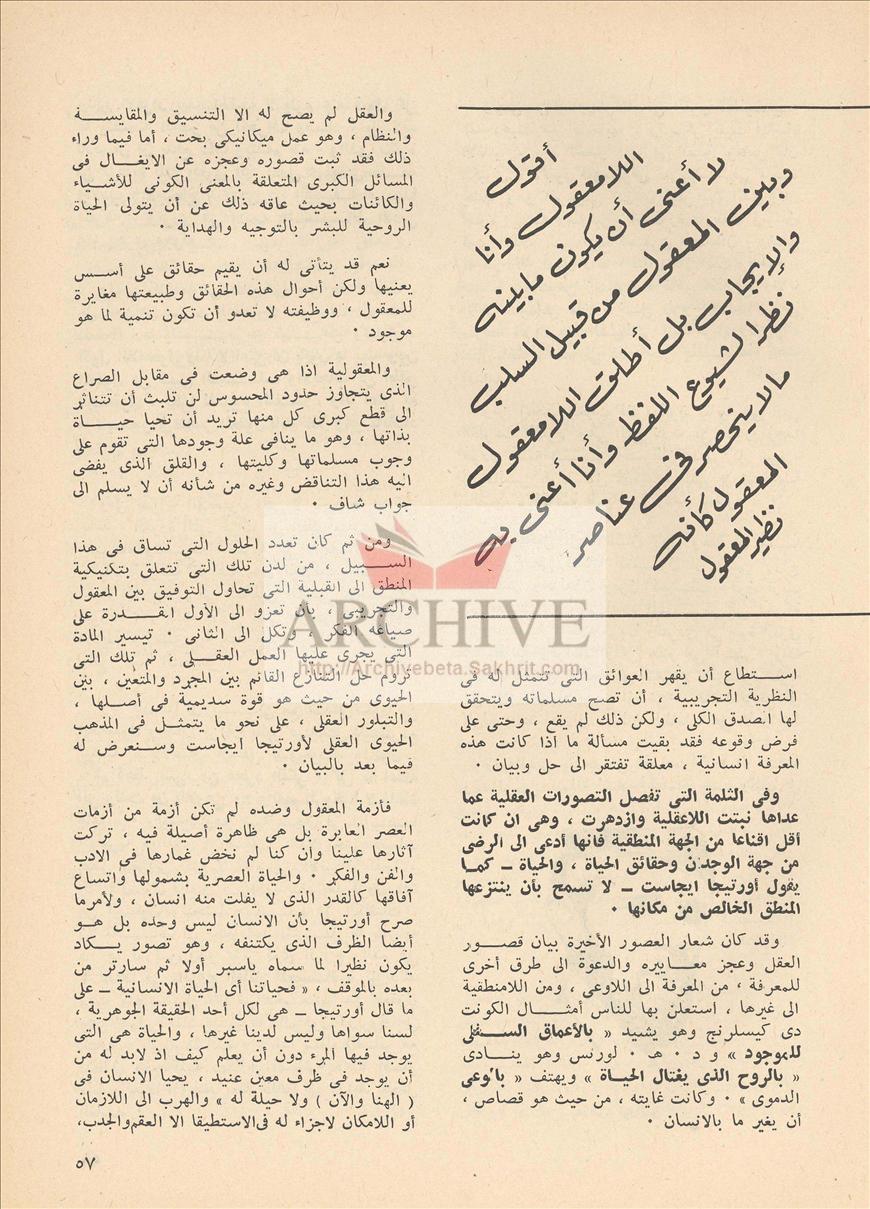 أقول
اللامعقول وأنا
لا أعنى أن يكون ما بينه
وبين المعقول من قبيل السلب
والإيجاب بل أطلق اللامعقول
نظرا لشيوع اللفظ وأنا أعنى به
ما لا ينحصر فى عناصر
المعقول كأنه
نظير المعقول
اســتطاع أن يقهر العوائق التى تتمثل له فى
النظرية التجريبية ، أن تصح مسلماته ويتحقق
لها الصدق الكلى ، ولكن ذلك لم يقع ، وحتى على
فرض وقوعه فقد بقيت مسألة ما اذا كانت هذه
المعرفة انسانية ، معلقة تفتقر الى حل وبيان .
وفى الثلمة التى تفصل التصورات العقلية عما
عداها نبتت اللاعقلية وازدهرت ، وهى ان كانت
أقل اقناعا من الجهة المنطقية فانها أدعى الى الرضى
من جهة الوجدن وحقائق الحياة ، والحياة ــ كمـا
يقول أورتيجا ايجاست ــ لا تسمح بأن ينتزعها
المنطق الخالص من مكانها .
وقد كان شعار العصور الأخيرة بيان قصــور
العقل وعجز معــاييره والدعوة الى طرق أخرى
للمعرفة ، من المعرفة الى اللاوعى ، ومن اللامنطقية
الى غيرها ، استعلن بها للناس أمثــال الكونت
دى كيسلرنج وهو يشيد « بالأعماق الســفلى
للموجود » و د . هـ . لورنس وهو ينــادى
« بالروح الذى يغتال الحياة » ويهتف « بالوعى
الدموى » . وكانت غايته ، من حيث هو قصاص ،
أن يغير ما بالانسان .
والعقل لم يصح له الا التنسيق والمقايســة
والنظام ، وهو عمل ميكانيكى بحت ، أما فيما وراء
ذلك فقد ثبت قصوره وعجزه عن الايغــال فى
المسائل الكبرى المتعلقة بالمعنى الكونى للأشياء
والكائنات بحيث عاقه ذلك عن أن يتولى الحياة
الروحية للبشر بالتوجيه والهداية .
نعم قد يتأتى له أن يقيم حقائق على أسـس
يعنيها ولكن أحوال هذه الحقائق وطبيعتها مغايرة
للمعقول ، ووظيفته لا تعدو أن تكون تنمية لما هو
موجود .
والمعقولية اذا هى وضعت فى مقابل الصراع
الذى يتجاوز حدود المحسوس لن تلبث أن تتناثر
الى قطع كبرى كل منها تريد أن تحيا حيــاة
بذاتها ، وهو ما ينافى علة وجودها التى تقوم على
وجوب مسلماتها وكليتها ، والقلق الذى يفضى
اليه هذا التناقض وغيره من شأنه أن لا يسلم الى
جواب شاف .
ومن ثم كان تعدد الحلول التى تساق فى هذا
الســبيل ، من لدن تلك التى تتعلق بتكنيكية
المنطق الى القبلية التى تحاول التوفيق بين المعقول
والتجريبى ، بأن تعزو الى الأول القــدرة على
صياغة الفكر ، وتكل الى الثانى . تيسير المادة
التى يجرى عليها العمل العقــلى ، ثم تلك التى
تروم حل التنازع القائم بين المجرد والمتعين ، بين
الحيوى من حيث هو قوة سديمية فى أصلها ،
والتبلور العقلى ، على نحو ما يتمثـل فى المذهب
الحيوى العقلى لأورتيجا ايجاست وسـنعرض له
فيما بعد بالبيان .
فأزمة المعقول وضده لم تكن أزمة من أزمات
العصر العابرة بل هى ظاهرة أصيلة فيه ، تركت
آثارها علينا وان كنا لم نخض غمارها فى الادب
والفن والفكر . والحياة العصرية بشمولها واتساع
آفاقها كالقدر الذى لا يفلت منه انسان ، ولأمرما
صرح أورتيجا بأن الانسان ليس وحده بل هــو
أيضا الظرف الذى يكتنفه ، وهو تصور يــكاد
يكون نظيرا لما سماه ياسبر أولا ثم سارتر من
بعده بالموقف ، « فحياتنا أى الحياة الانسانية ــ على
ما قال أورتيجا ــ هى لكل أحد الحقيقة الجوهرية ،
لسنا سواها وليس لدينا غيرها ، والحياة هى التى
يوجد فيها المرء دون أن يعلم كيف اذ لابد له من
أن يوجد فى ظرف معين عنيد ، يحيا الانسان فى
( الهنا والآن ) ولا حيلة له » والهرب الى اللازمان
أو اللامكان لاجزاء له فى الاستطيقا الا العقم والجدب،
٥٧
ARCHIVE
http://Archivebeta.Sakhrit.com